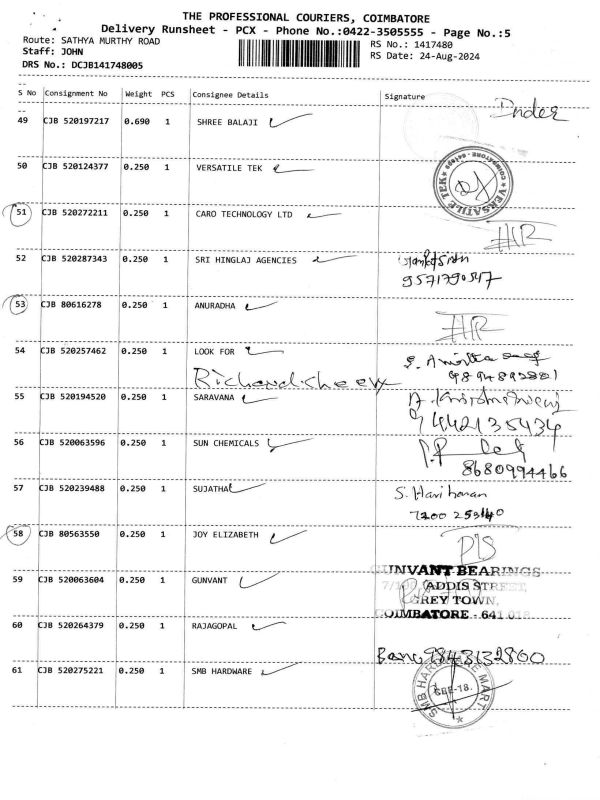 THE PROFESSIONAL COURIERS, COIMBATORE
Delivery Runsheet - PCX - Phone No.:0422-3505555 - Page No.:5
Route: SATHYA MURTHY ROAD
Staff: JOHN
DRS No.: DCJB141748005
RS No.: 1417480
RS Date: 24-Aug-2024
S No Consignment No Weight PCS Consignee Details Signature
49 CJB 520197217 0.690 1 SHREE BALAJI Inder
50 CJB 520124377 0.250 1 VERSATILE TEK
VERSATILE TEK
51 CJB 520272211 0.250 1 CARO TECHNOLOGY LTD
52 CJB 520287343 0.250 1 SRI HINGLAJ AGENCIES
53 CJB 80616278 0.250 1 ANURADHA
54 CJB 520257462 0.250 1 LOOK FOR
9894892881
55 CJB 520194520 0.250 1 SARAVANA
9442135434
56 CJB 520063596 0.250 1 SUN CHEMICALS
8680994466
57 CJB 520239488 0.250 1 SUJATHA S. Hariharan
7200 253140
58 CJB 80563550 0.250 1 JOY ELIZABETH
59 CJB 520063604 0.250 1 GUNVANT
GUNVANT BEARINGS
ADDIS STREET,
GREY TOWN,
COIMBATORE - 641 018
60 CJB 520264379 0.250 1 RAJAGOPAL
9843132800
61 CJB 520275221 0.250 1 SMB HARDWARE
SMB HARDWARE MART
CBE-18.